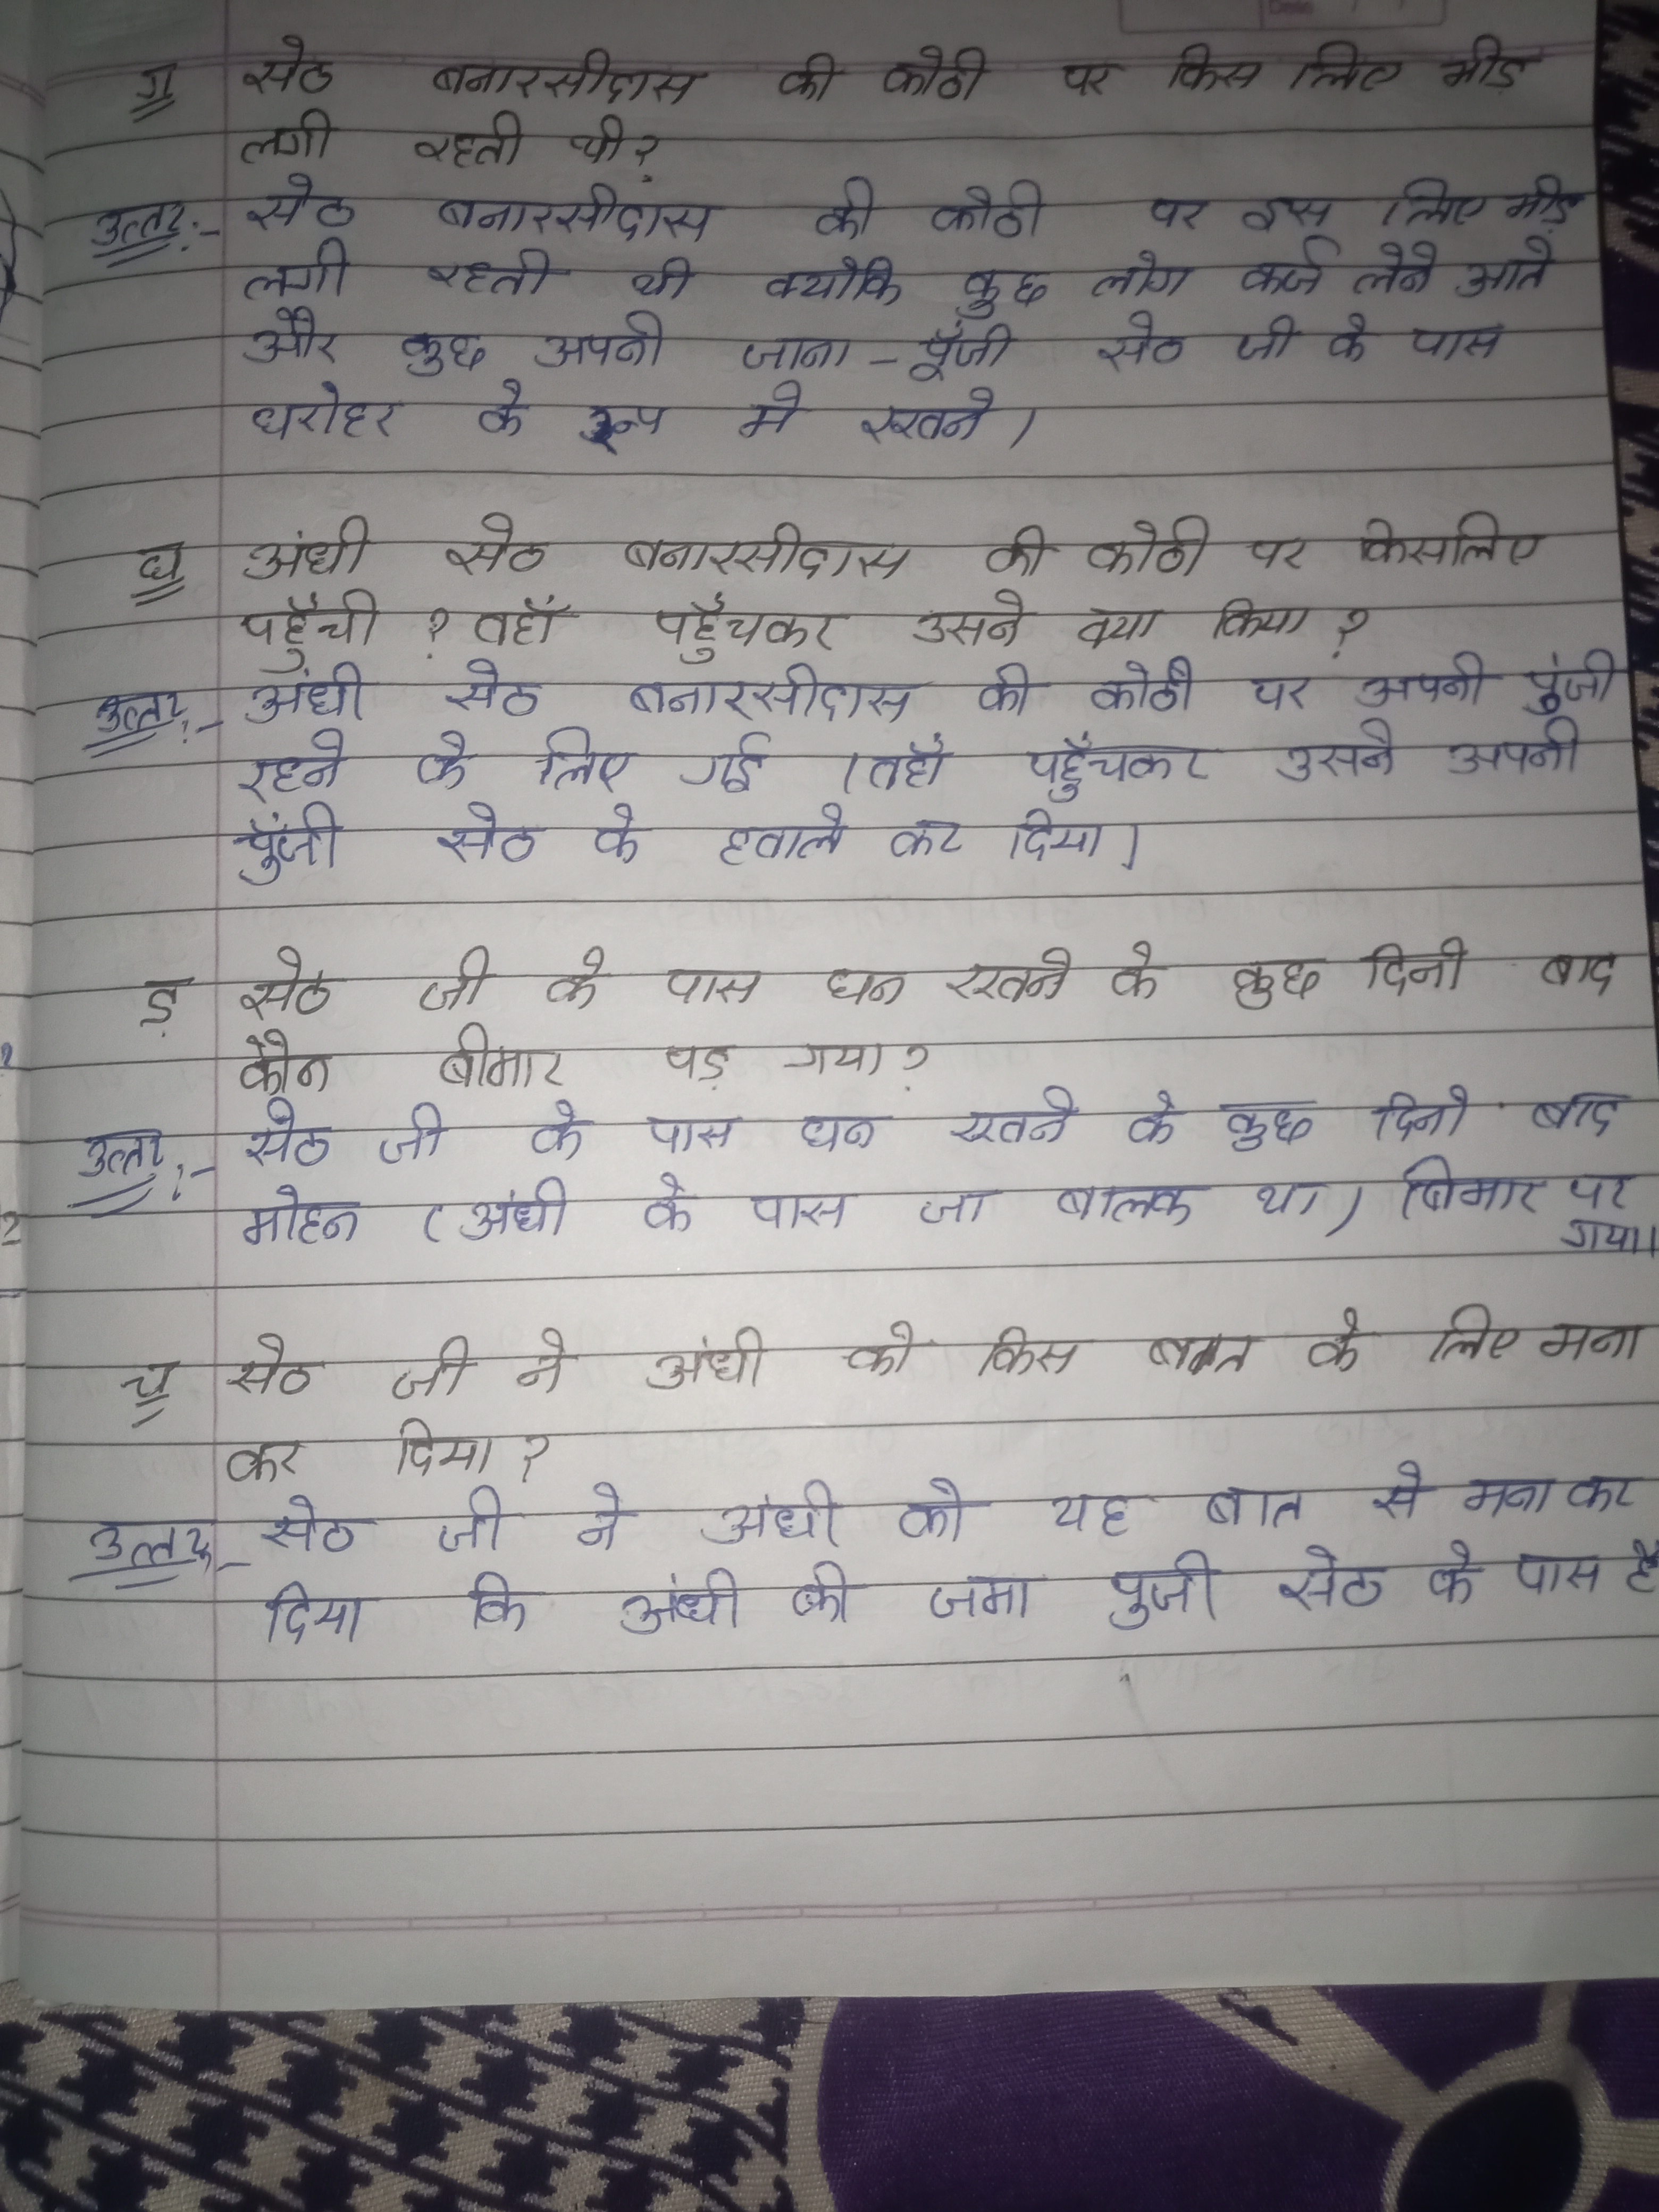 Date
ग सेठ बनारसीदास की कोठी पर किस लिए भीड़
लगी रहती थी?
उत्तर:- सेठ बनारसीदास की कोठी पर इस लिए भीड़
लगी रहती थी क्योकि कुछ लोग कर्ज लेने आते
और कुछ अपनी जाना - पूँजी सेठ जी के पास
धरोहर के रूप मे रखने।
घ अंधी सेठ बनारसीदास की कोठी पर किसलिए
पहुँची ? वहाँ पहुँचकर उसने क्या किया ?
उत्तर:- अंधी सेठ बनारसीदास की कोठी पर अपनी पुंजी
रहने के लिए गई । वहाँ पहुँचकर उसने अपनी
पुँजी सेठ के हवाले कर दिया।
ड़ सेठ जी के पास धन रखने के कुछ दिनो बाद
कौन बीमार पड़ गया?
उत्तर:- सेठ जी के पास धन रखने के कुछ दिनो बाद
मोहन (अंधी के पास जा बालक था) बिमार पर
गया।
च सेठ जी ने अंधी को किस बात के लिए मना
कर दिया?
उत्तर:- सेठ जी ने अंधी को यह बात से मना कर
दिया कि अंधी की जमा पुजी सेठ के पास है